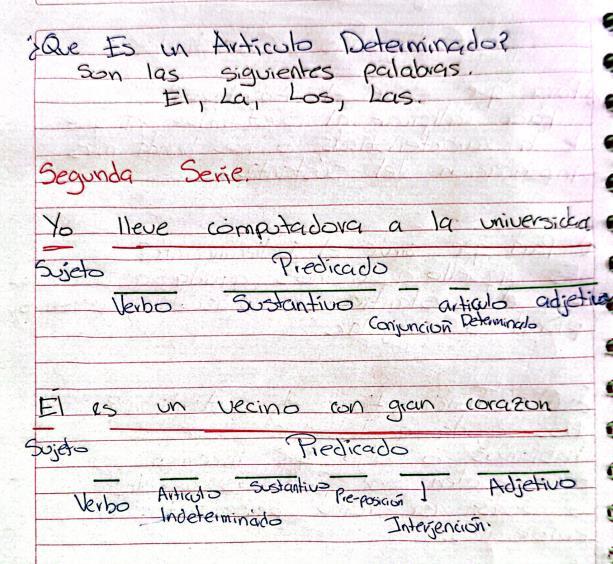 ¿Que Es un Articulo Determinado?
Son las siguientes palabras.
El, La, Los, Las.
Segunda Serie.
Yo lleve computadora a la universidad
Sujeto Predicado
Verbo Sustantivo articulo adjetivo
Conjuncion Determinado
El es un vecino con gran corazon
Sujeto Predicado
Verbo Articulo Sustantivo Pre-posición Adjetivo
Indeterminado Interjención.